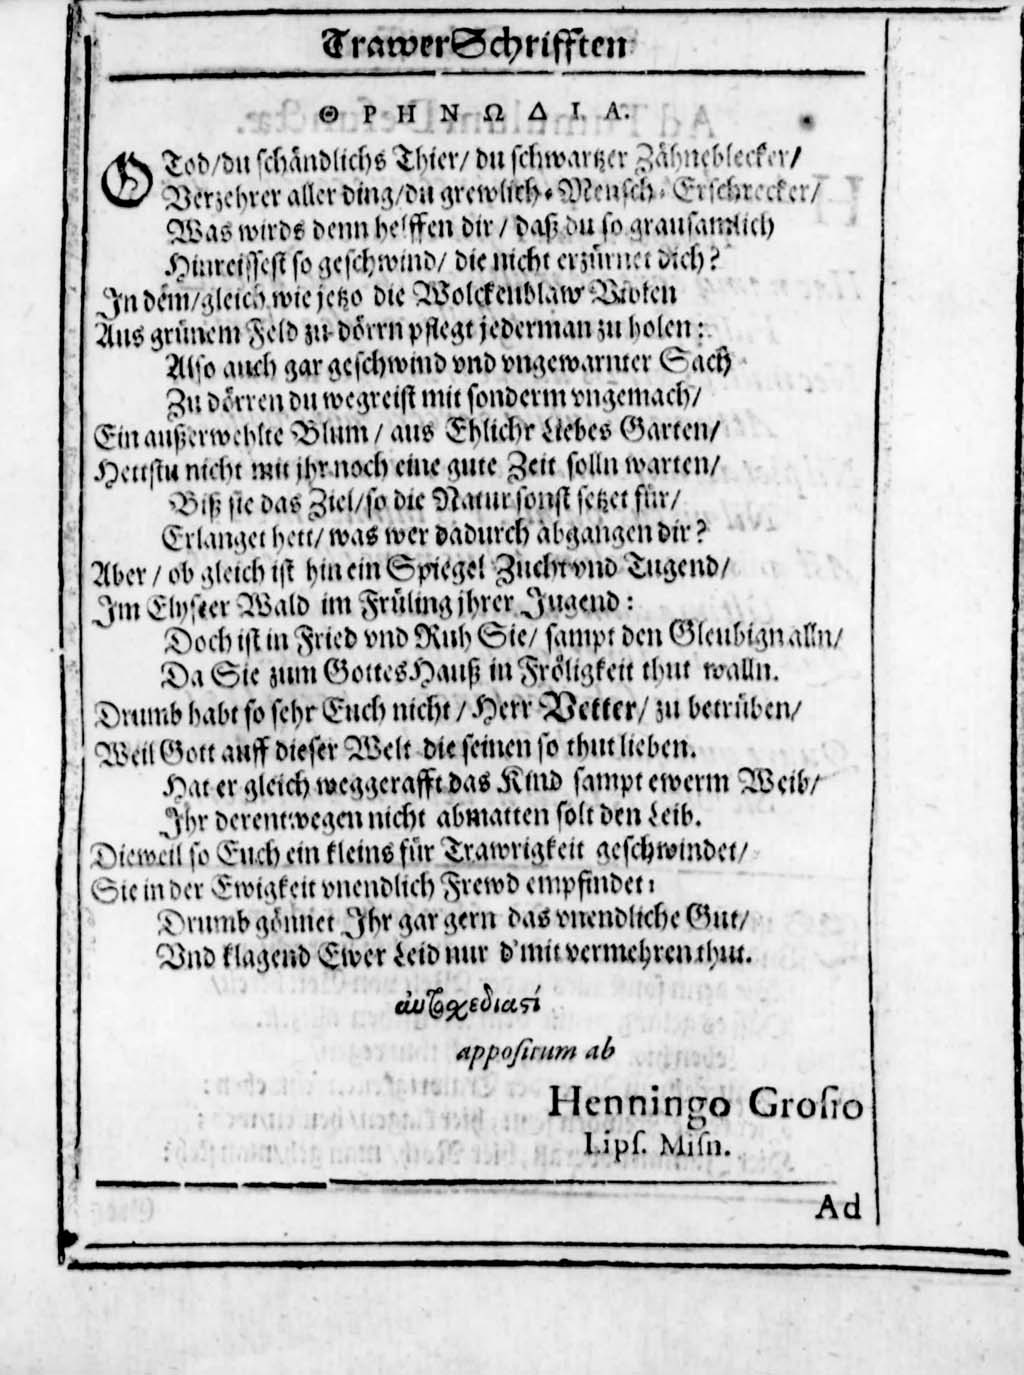 TrawerSchrifften
ΘΡΗΝΩΔΙΑ.
O Tod/du schändlichs Thier/ du schwartzer Zähneblecker/
Verzehrer aller ding/du grewlich-Mensch-Erschrecker/
Was wirds denn helffen dir / daß du so grausamlich
Hinreissest so geschwind/ die nicht erzürnet dich?
In dem/gleich wie jetzo die Wolckenblaw Violen
Aus grünem Feld zu dörrn pflegt jederman zu holen:
Also auch gar geschwind vnd vngewarnter Sach
Zu dörren du wegreist mit sonderm vngemach/
Ein außerwehlte Blum / aus Ehlichr Liebes Garten/
Hettstu nicht mit jhr noch eine gute Zeit solln warten/
Biß sie das Ziel/so die Natur sonst setzet für/
Erlanget hett/ was wer dadurch abgangen dir?
Aber / ob gleich ist hin ein Spiegel Zucht vnd Tugend/
Im Elyseer Wald im Früling jhrer Jugend:
Doch ist in Fried vnd Ruh Sie/ sampt den Gleubign alln/
Da Sie zum GottesHauß in Fröligkeit thut walln.
Drumb habt so sehr Euch nicht / Herr Vetter/ zu betrüben/
Weil Gott auff dieser Welt die seinen so thut lieben.
Hat er gleich weggerafft das Kind sampt ewerm Weib/
Ihr derentwegen nicht abmatten solt den Leib.
Dieweil so Euch ein kleins für Trawrigkeit geschwindet/
Sie in der Ewigkeit vnendlich Frewd empfindet:
Drumb gönnet Ihr gar gern das vnendliche Gut/
Vnd klagend Ewer Leid nur d'mit vermehren thut.
αὐτοσχεδιαστί
appositum ab
Henningo Grosio
Lips. Misn.
Ad